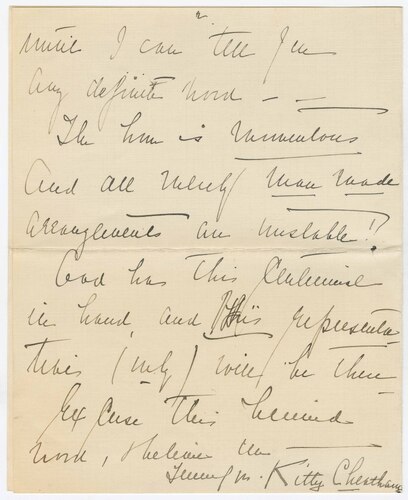 2.
until I can tell you
any definite word — —
The hour is momentous
and all merely man made
arrangements are unstable!!
God has this Centennial
in hand, and His representa
tives (only) will be there
Excuse this hurried
word, & believe me —
Kitty Cheatham